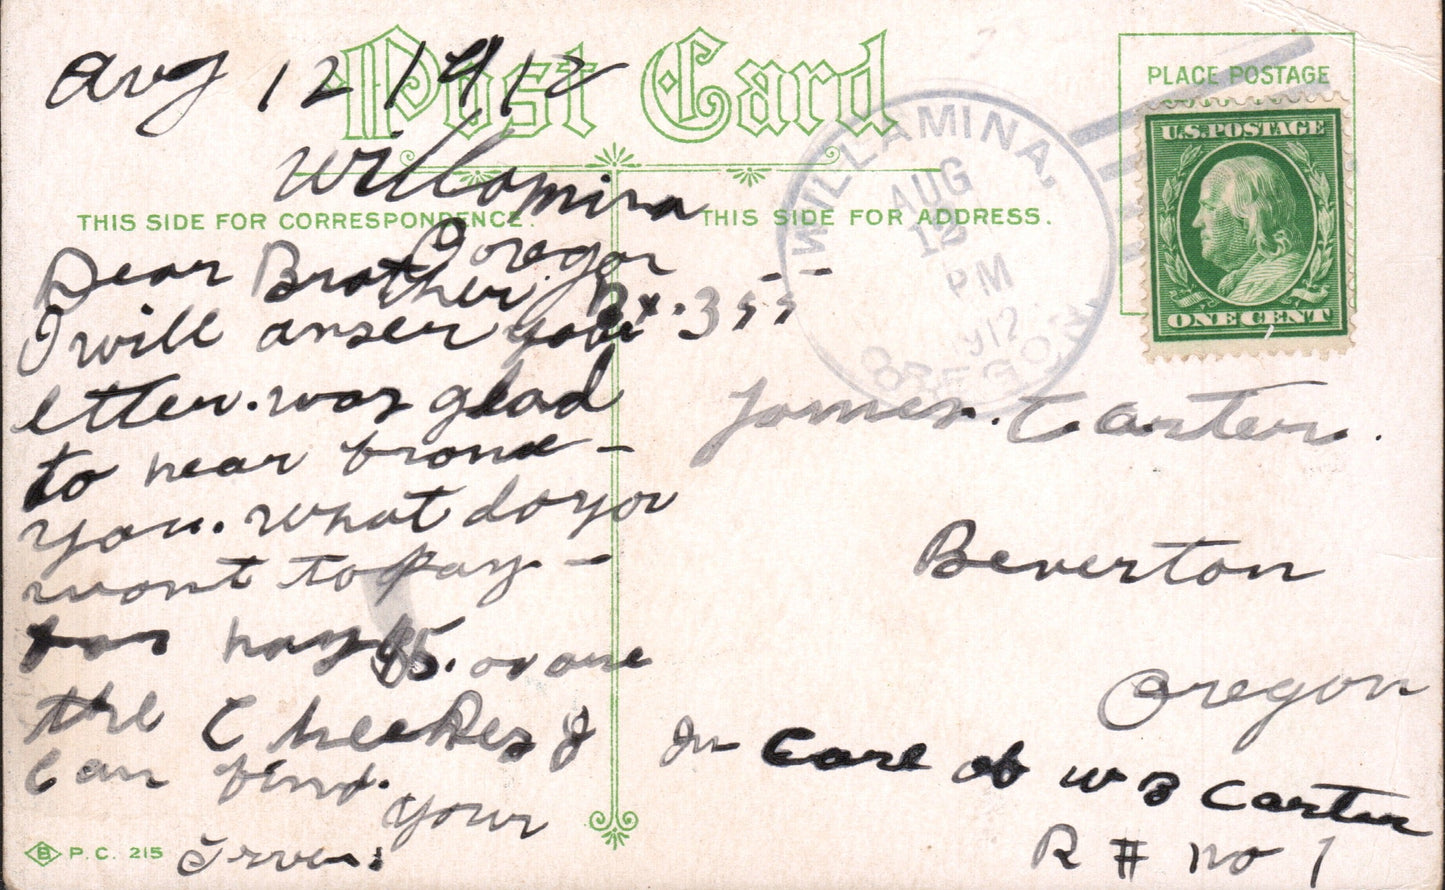 Post Card
THIS SIDE FOR CORRESPONDENCE.
THIS SIDE FOR ADDRESS.
PLACE POSTAGE
U.S. POSTAGE
ONE CENT
WILLAMINA,
AUG
12
PM
1912
OREGON
Aug 12 1912
Willomina
Oregon
Bx. 355
Dear Brother
I will anser your
letter. was glad
to hear from
you. what do you
wont to pay
for hay $5. or one
the Cheekes I
Can find.
your
James. Carter.
Beverton
Oregon
In Care of W B Carter
R # no 1
B P. C. 215